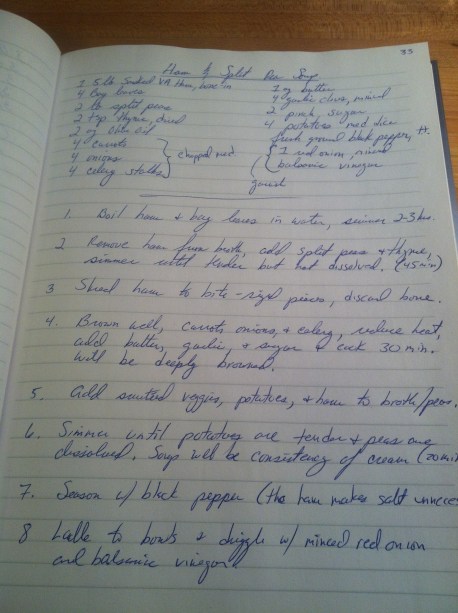 33
Ham & Split Pea Soup
1 5 lb Smoked VA Ham, bone in
4 Bay leaves
2 lb split peas
2 tsp thyme, dried
2 oz olive oil
4 carrots
4 onions
4 celery stalks
chopped med
1 oz butter
4 garlic cloves, minced
2 pinch, sugar
4 potatoes med dice
fresh ground black pepper,
1 red onion, minced
balsamic vinegar
garnish
1. Boil ham & bay leaves in water, simmer 2-3 hrs.
2 Remove ham from broth, add split peas & thyme,
simmer until tender but not dissolved. (45 min)
3 Shred ham to bite-sized pieces, discard bone.
4. Brown well, carrots, onions, & celery, reduce heat,
add butter, garlic, & sugar & cook 30 min.
Will be deeply browned.
5. Add sauteed veggies, potatoes, & ham to broth/peas.
6. Simmer until potatoes are tender & peas are
dissolved. Soup will be consistency of cream (20 min
7. Season w/ black pepper (the ham makes salt unneces
8 Ladle to bowls & drizzle w/ minced red onion
and balsamic vinegar.